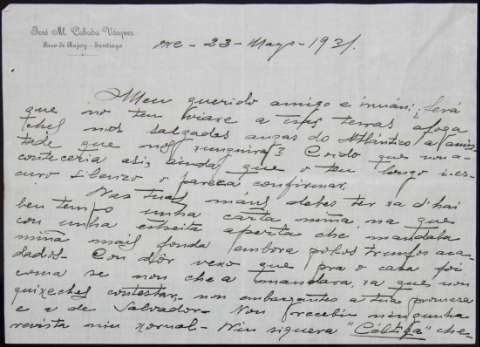 José M. Cabada Vázquez
Paseo de Anjoy - Santiago
23 - Mayo - 931.
Meu querido amigo e irmán: ¿será
que no teu viaxe a esas terras afoga
tche nos salgadas augas do Atlántico a amis
tade que nos xunguira? Coido que non a-
contecería asi, ainda que o teu longo i es-
curo silenzo o pareza confirmar.
Nas tuas máns debes ter xa d'hai
ben tempo unha carta miña, na que
cou unha estreita aperta che mandaba
miña mais fonda embora polos trunfos aca-
dados. Con dór vexo que pra o caso foi
coma se non che a mandara, xa que non
quixeches contestar, non embargantes a tua promesa
e a de Salvador. Non recebin ningunha
revista nin xornal. Nin siquera "Céltiga" che-